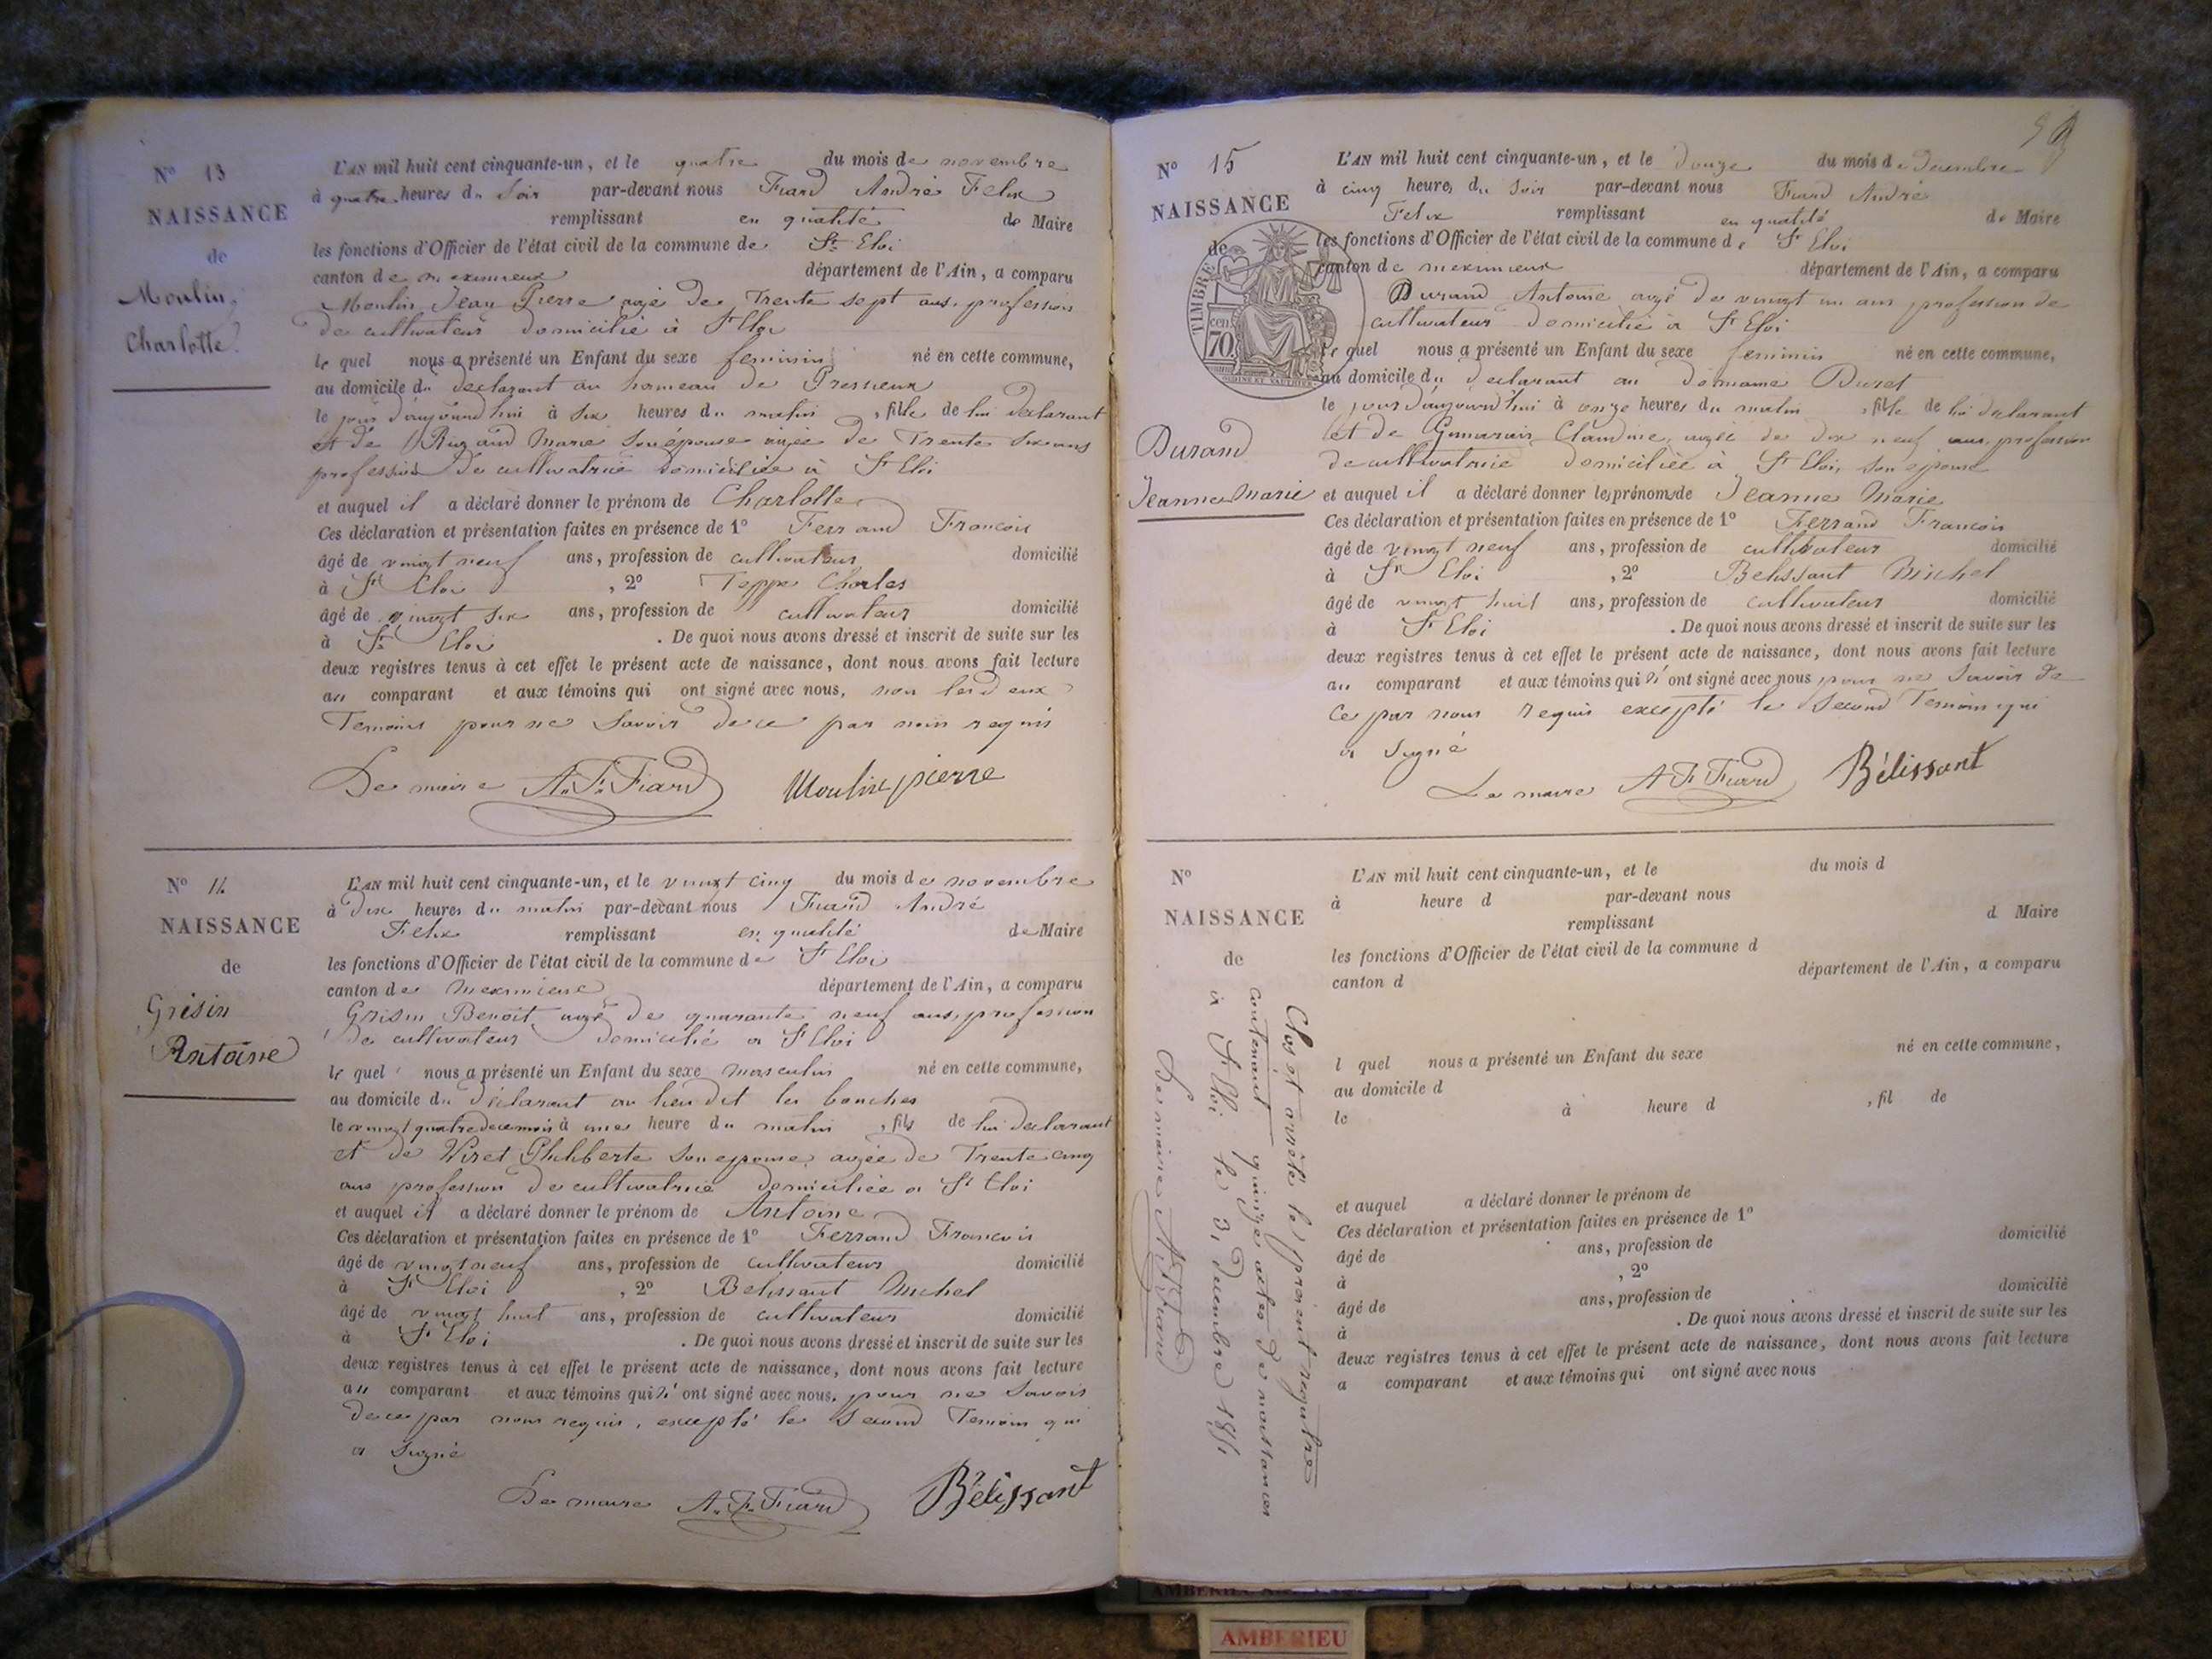 Nº 13
NAISSANCE
de
Moulin
Charlotte
L'AN mil huit cent cinquante-un, et le quatre du mois de novembre
à quatre heures du Soir par-devant nous Fiard André Felix
remplissant en qualité de Maire
les fonctions d'Officier de l'état civil de la commune de St Eloi
canton de meximieux département de l'Ain, a comparu
Moulin Jean Pierre agé de Trente sept ans, profession
de cultivateur domicilié à St Eloi
le quel nous a présenté un Enfant du sexe feminin né en cette commune,
au domicile du declarant au hameau de Pressieux
le jour d'aujourd'hui à six heures du matin, fille de lui declarant
et de Marie Son épouse agée de Trente six ans
profession de cultivatrice domiciliée à St Eloi
et auquel il a déclaré donner le prénom de Charlotte
Ces déclaration et présentation faites en présence de 1º Ferrand Francois
âgé de vingt neuf ans, profession de cultivateur domicilié
à St Eloi, 2º Teppe Charles
âgé de vingt six ans, profession de cultivateur domicilié
à St Eloi. De quoi nous avons dressé et inscrit de suite sur les
deux registres tenus à cet effet le présent acte de naissance, dont nous avons fait lecture
au comparant et aux témoins qui ont signé avec nous, non les deux
Temoins pour ne Savoir de ce par nous requis
Le maire A. F. Fiard Moulin pierre
Nº 14
NAISSANCE
de
Grisin
Antoine
L'AN mil huit cent cinquante-un, et le vingt cinq du mois de novembre
à dix heures du matin par-devant nous Fiard André
Felix remplissant en qualité de Maire
les fonctions d'Officier de l'état civil de la commune de St Eloi
canton de Meximieux département de l'Ain, a comparu
Grisin Benoit agé de quarante neuf ans, profession
de cultivateur domicilié a St Eloi
le quel nous a présenté un Enfant du sexe masculin né en cette commune,
au domicile du déclarant au lieu dit les bauches
le vingt quatre de ce mois à une heure du matin, fils de lui declarant
et de Viret Philiberte Son epouse, agée de Trente cinq
ans profession de cultivatrice domiciliée a St Eloi
et auquel il a déclaré donner le prénom de Antoine
Ces déclaration et présentation faites en présence de 1º Ferrand Francois
âgé de vingt neuf ans, profession de cultivateur domicilié
à St Eloi, 2º Belissant Michel
âgé de vingt huit ans, profession de cultivateur domicilié
à St Eloi. De quoi nous avons dressé et inscrit de suite sur les
deux registres tenus à cet effet le présent acte de naissance, dont nous avons fait lecture
au comparant et aux témoins qui n'ont signé avec nous, pour ne Savoir
de ce par nous requis, excepté le Second Temoin qui
a Signé
Le maire A. F. Fiard Bélissant
Nº 15
NAISSANCE
de
TIMBRE
CEN
70
Durand
Jeanne Marie
L'AN mil huit cent cinquante-un, et le douze du mois de decembre
à cinq heures du soir par-devant nous Fiard André
Felix remplissant en qualité de Maire
les fonctions d'Officier de l'état civil de la commune de St Eloi
canton de meximieux département de l'Ain, a comparu
Durand Antoine agé de vingt un ans profession de
cultivateur domicilié a St Eloi
le quel nous a présenté un Enfant du sexe feminin né en cette commune,
au domicile du declarant au domaine Buret
le jour d'aujourd'hui à onze heures du matin, fille de lui declarant
et de Claudine, agée de dix neuf ans, profession
de cultivatrice domiciliée à St Eloi, son épouse
et auquel il a déclaré donner les prénoms de Jeanne Marie
Ces déclaration et présentation faites en présence de 1º Ferrand Francois
âgé de vingt neuf ans, profession de cultivateur domicilié
à St Eloi, 2º Belissant Michel
âgé de vingt huit ans, profession de cultivateur domicilié
à St Eloi. De quoi nous avons dressé et inscrit de suite sur les
deux registres tenus à cet effet le présent acte de naissance, dont nous avons fait lecture
au comparant et aux témoins qui n'ont signé avec nous pour ne Savoir de
ce par nous requis excepté le Second Temoin qui
a Signé
Le maire A F Fiard Bélissant
Nº
NAISSANCE
de
Clos et arrêté le présent registre
contenant quinze actes de naissances
a St Eloi le 31 decembre 1851
Le maire A F Fiard
L'AN mil huit cent cinquante-un, et le du mois d
à heure d par-devant nous
remplissant d Maire
les fonctions d'Officier de l'état civil de la commune d
canton d département de l'Ain, a comparu
l quel nous a présenté un Enfant du sexe né en cette commune,
au domicile d
le à heure d, fil de
et auquel a déclaré donner le prénom de
Ces déclaration et présentation faites en présence de 1º
âgé de ans, profession de domicilié
à, 2º
âgé de ans, profession de domicilié
à. De quoi nous avons dressé et inscrit de suite sur les
deux registres tenus à cet effet le présent acte de naissance, dont nous avons fait lecture
a comparant et aux témoins qui ont signé avec nous
AMBERIEU